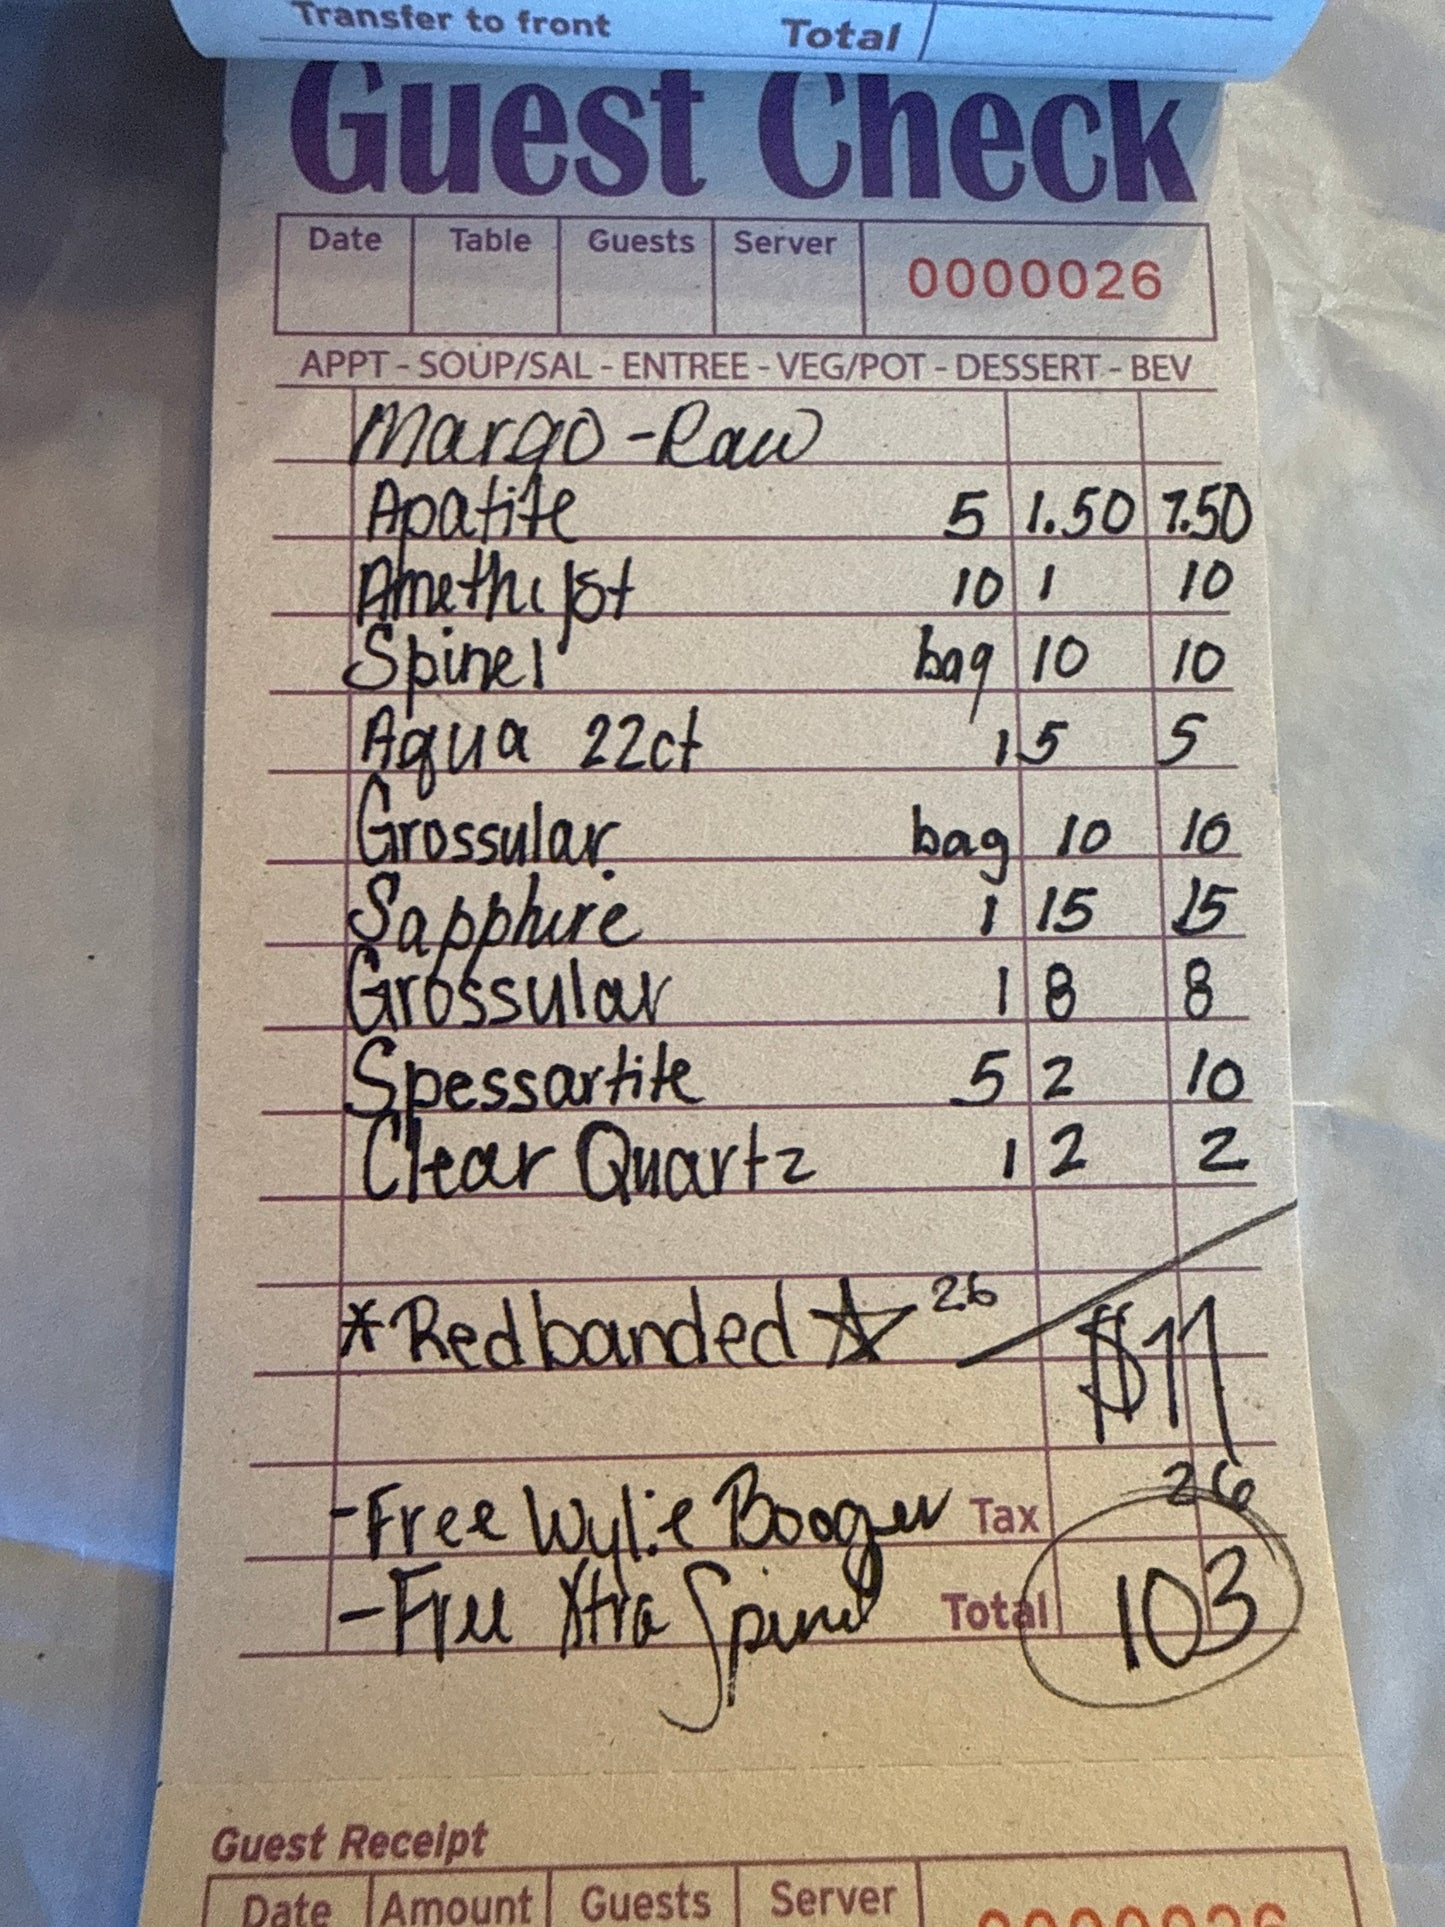 Transfer to front Total
Guest Check
Date Table Guests Server 0000026
APPT - SOUP/SAL - ENTREE - VEG/POT - DESSERT - BEV
Margo - Raw
Apatite 5 1.50 7.50
Amethyst 10 1 10
Spinel bag 10 10
Aqua 22ct 1 5 5
Grossular bag 10 10
Sapphire 1 15 15
Grossular 1 8 8
Spessartite 5 2 10
Clear Quartz 1 2 2
*Redbanded ☆ 26
$77
26
-Free Wylie Booger Tax
-Free Xtra Spinel Total 103
Guest Receipt
Date Amount Guests Server 0000026